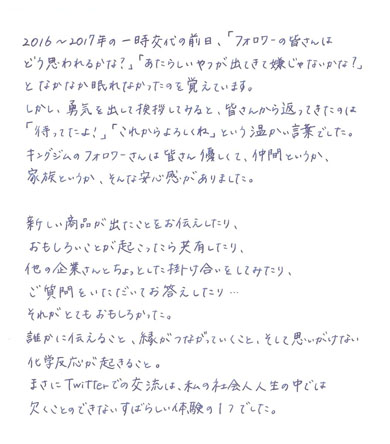 2016～2017年の一時交代の前日、「フォロワーの皆さんは
どう思われるかな？」「あたらしいやつが出てきて嫌じゃないかな？」
となかなか眠れなかったのを覚えています。
しかし、勇気を出して挨拶してみると、皆さんから返ってきたのは
「待ってたよ！」「これからよろしくね」という温かい言葉でした。
キングジムのフォロワーさんは皆さん優しくて、仲間というか、
家族というか、そんな安心感がありました。
新しい商品が出たことをお伝えしたり、
おもしろいことが起こったら共有したり、
他の企業さんとちょっとした掛け合いをしてみたり、
ご質問をいただいてお答えしたり…
それがとてもおもしろかった。
誰かに伝えること、縁がつながっていくこと、そして思いがけない
化学反応が起きること。
まさにTwitterでの交流は、私の社会人人生の中では
欠くことのできないすばらしい体験の1つでした。